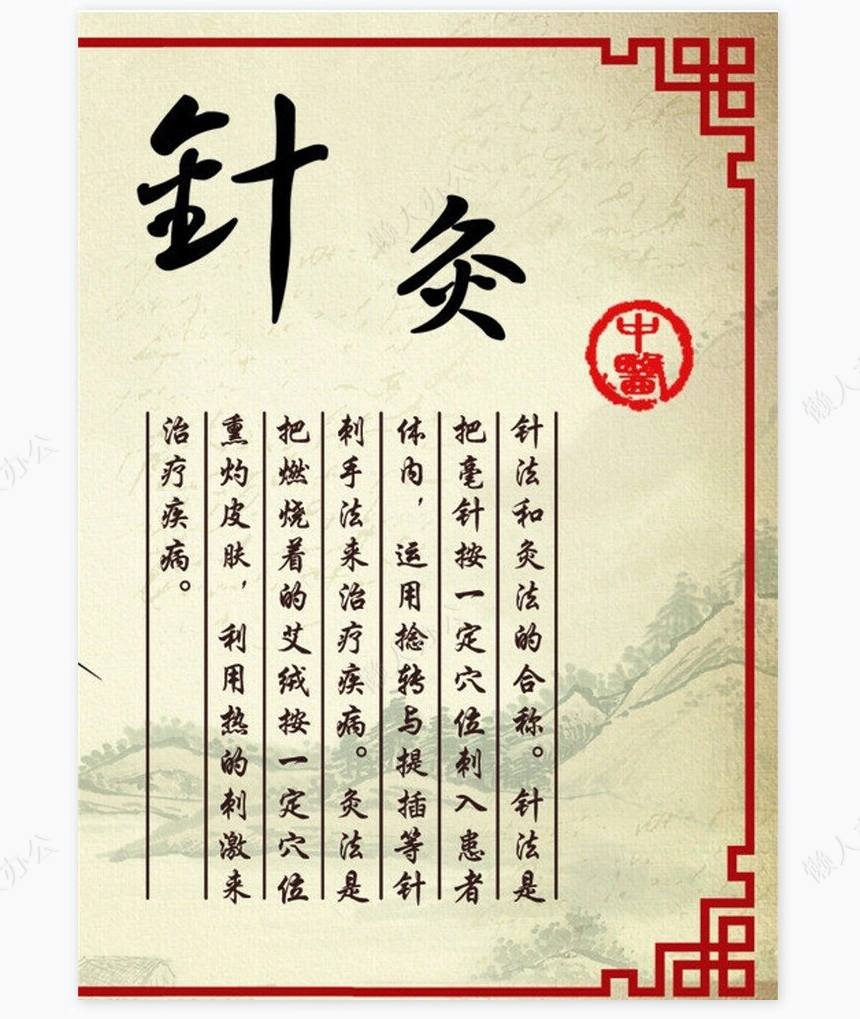 針灸
中醫
针法和灸法的合称。针法是
把毫针按一定穴位刺入患者
体内，运用捻转与提插等针
刺手法来治疗疾病。灸法是
把燃烧着的艾绒按一定穴位
熏灼皮肤，利用热的刺激来
治疗疾病。
懒人办公
懒人办公